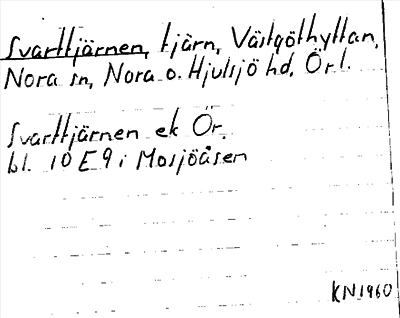 Svarttjärnen, tjärn, Västgöthyttan,
Nora sn, Nora o. Hjulsjö hd, Ör l.
Svarttjärnen ek Ör.
bl. 10 E 9 i Mosjöåsen
KN 1960